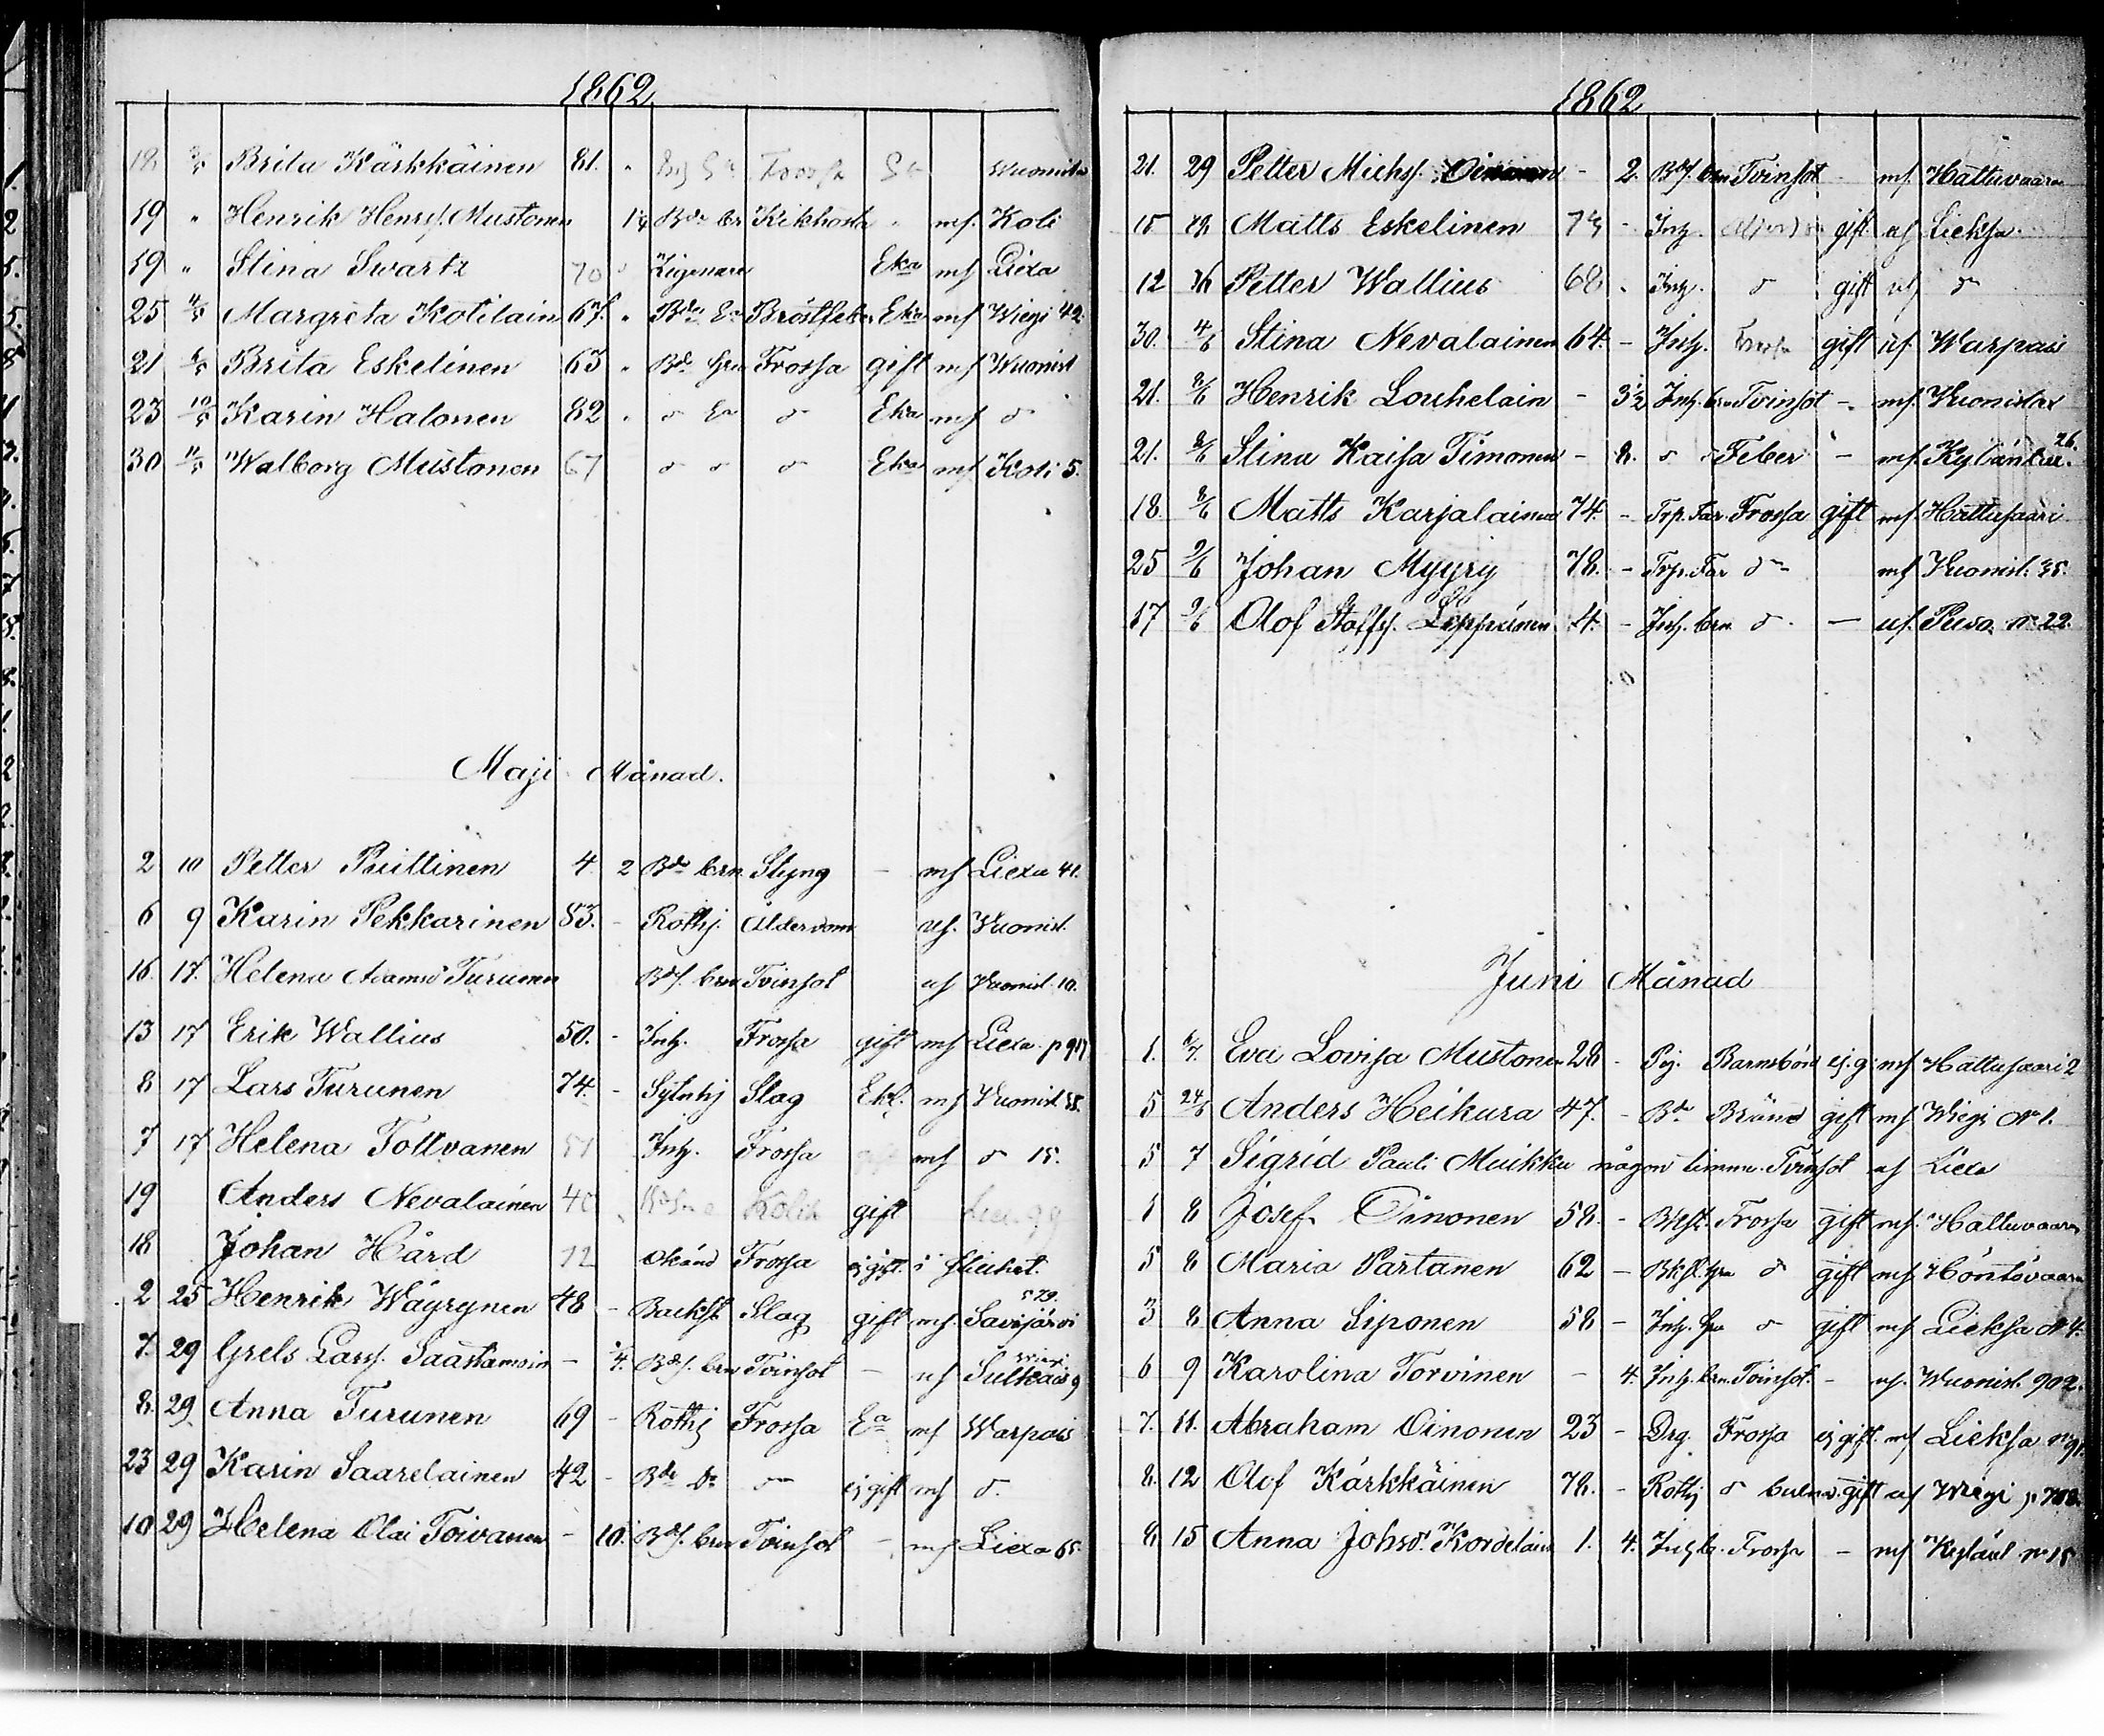 1862
18 3/5 Brita Kärkkäinen 81. " Frossa Wuonisla
19 " Henrik Henrss. Mustonen 1/4 Bde brn Kikhosta " mf. Koli
19 " Stina Swartz 70 " Zigenare Eka mf Liexa
25 4/5 Margreta Kotilain 67. " Bde Ea Bröstfeber Eka mf Wiegi 42
21 6/5 Brita Eskelinen 63 " Bde hru Frossa gift mf Wuonisl
23 10/5 Karin Halonen 82 " d Ea d Eka mf d
30 11/5 Walborg Mustonen 67 d d d Eka mf Koli 5.
Maji Månad.
2 10 Petter Puittinen 4. 2 Bde brn Styng - mf Liexa 41.
6 9 Karin Pekkarinen 83. - Rothj. Ålderdom uf. Wuonisl.
16. 17. Helena Adamsd Turunen Bdf. brn Tvinsot uf Wuonisl. 10.
13 17 Erik Wallius 50. - Inh. Frossa gift mf Liexa p 917
8 17 Lars Turunen 74. - Sytnhj Slag Ekl. mf Wuonisl. 38.
7 17 Helena Tollvanen 51 Inh. Frossa mf d 15.
19 Anders Nevalainen 40 Kolik gift
18 Johan Hård 12 okänd Frossa ej gift. i
2 25 Henrik Wäyrynen 48 - Backst Slag gift mf. Savijärvi 579.
7. 29 Grels Larss. Saastamoin - 1/4. Bdf. brn Tvinsot - uf Sulkais 9 Wiegi
8. 29 Anna Turunen 69 - Rothj Frossa Ea mf Warpais
23 29 Karin Saarelainen 42 - Bde Dr d ej gift mf d.
10 29 Helena Olai Toivanen - 10. Bdf. brn Tvinsot - mf. Liexa 65.
1862
21. 29 Petter Michss. Oinonen - 2. Bdf. brn Tvinsot - mf. Hattuvaara
15 29 Matts Eskelinen 74 - Inh. gift uf Lieksa
12 Petter Wallius 68 - Inh. d gift uf d
30. 4/6 Stina Nevalainen 64. - Inh. Frossa gift uf. Warpais
21. 8/6 Henrik Louhelain - 3 1/2 Inh. brn Tvinsot - mf. Wuonislax
21. 8/6 Stina Kaisa Timonen - 8. d d Feber - mf. Kylänlax. 26.
18. 8/6 Matts Karjalainen 74. - Trp. Far. Frossa gift mf. Hattusaari
25 9/6 Johan Myyry 78. - Trp. Far d mf Wuonisl. 35.
17 9/6 Olof Staffss. Leppänen 4. - Inh. brn d - uf. Puso. No 22.
Juni Månad
1. 6/7. Eva Lovisa Mustonen 28 - Pig. Barnsbörd ej. g. mf Hattusaari 2
5 24/6 Anders Heikura 47. - Bde Bränd gift mf Wiegi No 1.
5 7 Sigrid Pauli Muikku någon timma. Tvinsot uf Liexa
1 8 Josef Oinonen 58. - Bkst. Frossa gift mf. Hattuvaara
5 8 Maria Partanen 62 - Bkst. hru d gift mf Höntövaara
3 8 Anna Siponen 58 - Inh. hru d gift mf Lieksa No 4.
6 9 Karolina Torvinen - 4. Inh. brn. Tvinsot. - uf. Wuonisl. 902.
7. 11. Abraham Oinonen 23 - Drg. Frossa ej gift. mf Lieksa No 91.
8. 12 Olof Kärkkäinen 78. - Rothj d gift uf Wiegi
8. 15 Anna Johsd. Kordelain 1. 4. Inh b. Frossa - mf Kylänl No 15